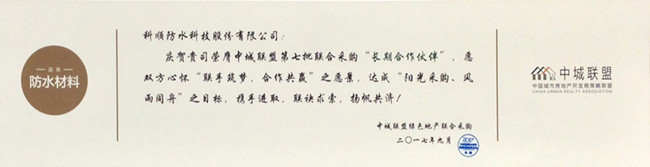 品类
防水材料
科顺防水科技股份有限公司：
庆贺贵司荣膺中城联盟第七批联合采购“长期合作伙伴”，愿
双方心怀“联手筑梦，合作共赢”之愿景，达成“阳光采购、风
雨同舟”之目标，携手进取，联袂求索，扬帆共济！
中城联盟绿色地产联合采购
二〇一七年九月
2017
中城联盟
中国城市房地产开发商策略联盟
CHINA URBAN REALTY ASSOCIATION